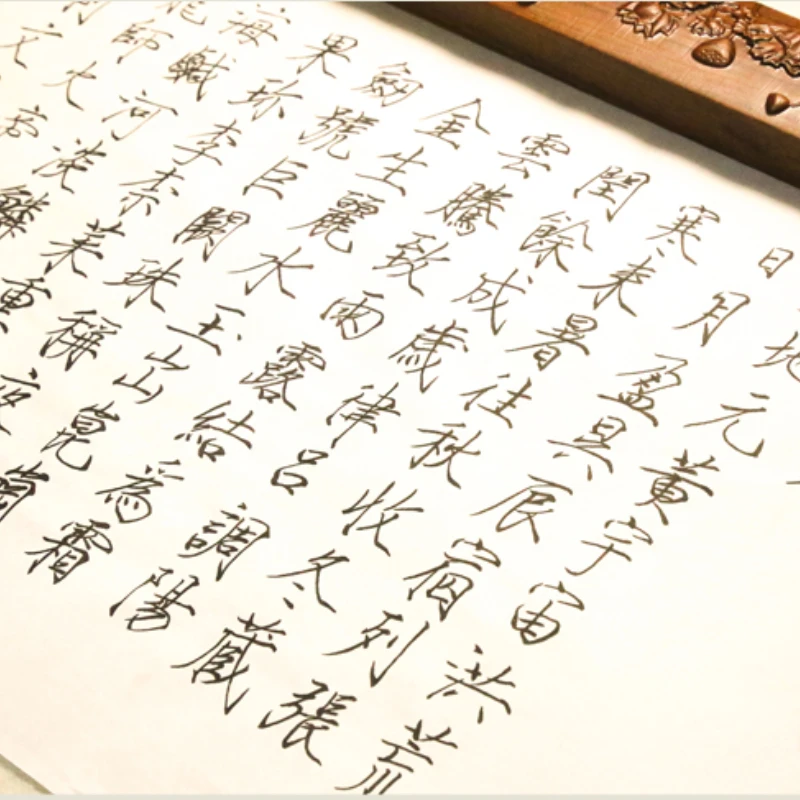 地元黃宇宙洪荒
日月盈昃辰宿列張
寒來暑往秋收冬藏
閏餘成歲律呂調陽
雲騰致雨露結為霜
金生麗水玉出崑崗
劍號巨闕珠稱夜
果珍李柰菜重
海鹹河淡鱗
龍師火帝
文